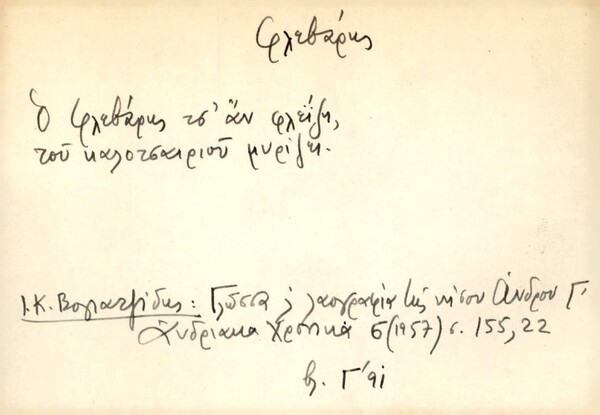 Φλεβάρης
Ὁ Φλεβάρης τσ' ἄν φλεΐζη,
τοῦ καλοτσαιριοῦ μυρίζει.
Ι. Κ. Βογιατζίδης: Γλῶσσα & λαογραφία τῆς νήσου Ἄνδρου Γ'
Ἀνδριακὰ Χρονικὰ 6 (1957) σ. 155, 22
βλ. Γ'